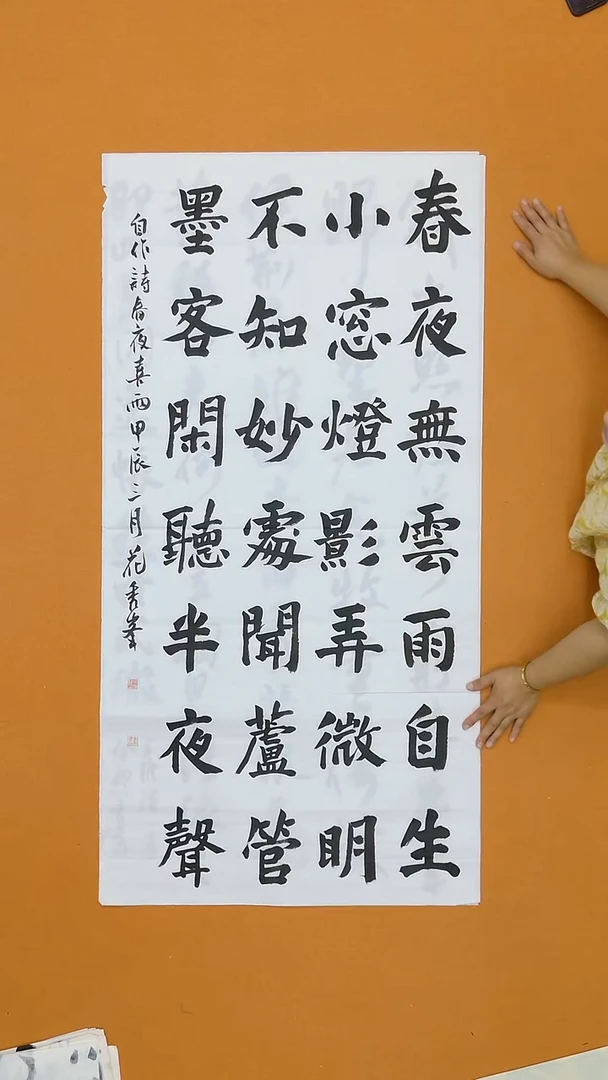 春夜無雲雨自生
小窓燈影弄微明
不知妙處聞蘆管
墨客閑聽半夜聲
自作詩春夜喜雨甲辰三月花秀峯